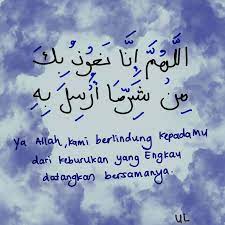 اللَّهُمَّ إِنَّا نَعُوْذُ بِكَ
مِنْ شَرِّمَا أُرْسِلَ بِهِ
Ya Allah, kami berlindung kepadaMu
dari keburukan yang Engkau
datangkan bersamanya.
UL